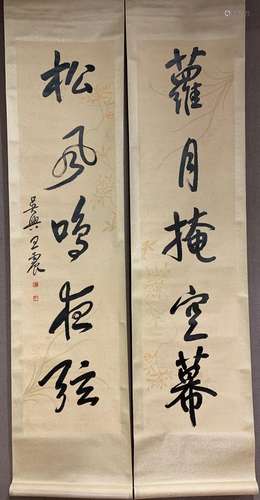 蘿月掩空幕
松風鳴夜弦
吳興王震